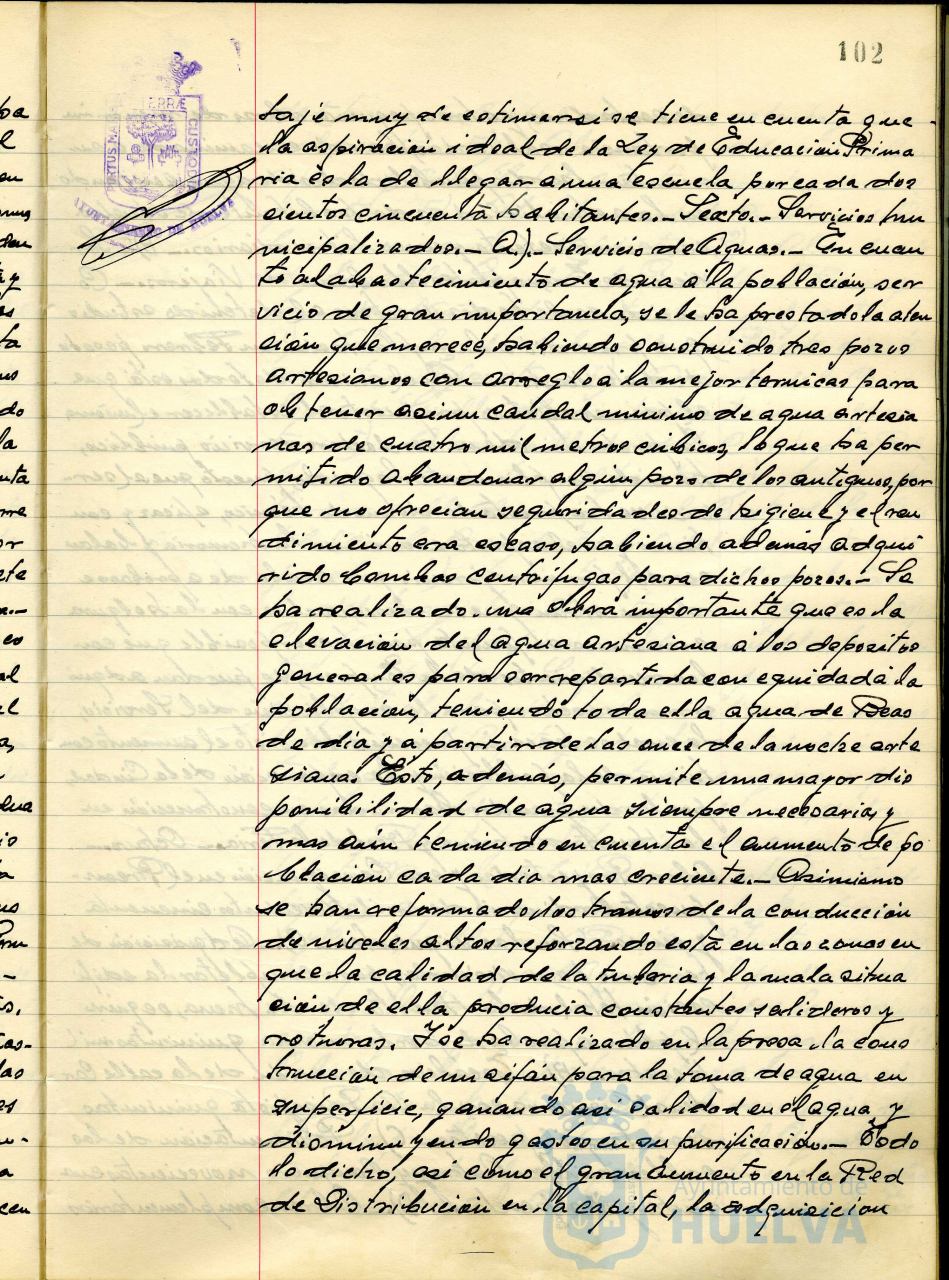 102
taje muy de estimarsi se tiene en cuenta que
la aspiracion ideal de la Ley de Educación Prima
ria es la de llegar á una escuela por cada dos
cientos cincuenta habitantes.- Sexto.- Servicios mu
nicipalizados.- A).- Servicio de Aguas.- En cuan
to al abastecimiento de agua á la población, ser
vicio de gran importancia, se le ha prestado la aten
ción que merece, habiendo construido tres pozos
artesianos con arreglo á la mejor tecnicas para
obtener asi un caudal minimo de agua artesia
nas de cuatro mil metros cúbicos, lo que ha per
mitido abandonar algún pozo de los antiguos, por
que no ofrecian seguridades de higiene y el ren
dimiento era escaso, habiendo además adqui
rido bombas centrifugas para dichos pozos.- Se
ha realizado una obra importante que es la
elevación del agua artesiana á los depositos
generales para ser repartida con equidad á la
población, teniendo toda ella agua de Beas
de dia y á partir de las once de la noche arte
siana. Esto, además, permite una mayor dis
ponibilidad de agua siempre necesaria, y
mas aún teniendo en cuenta el aumento de po
blación cada dia mas creciente.- Asimismo
se han reformado los tramos de la conducción
de niveles altos reforzando esta en las zonas en
que la calidad de la tuberia y la mala situa
ción de ella producia constantes salideros y
roturas. Y se ha realizado en la presa la cons
trucción de un sifón para la toma de agua en
superficie, ganando asi calidad en el agua y
disminuyendo gastos en su purificación.- Todo
lo dicho, asi como el gran aumento en la Red
de Distribución en la capital, la adquisicion
Ayuntamiento de
HUELVA